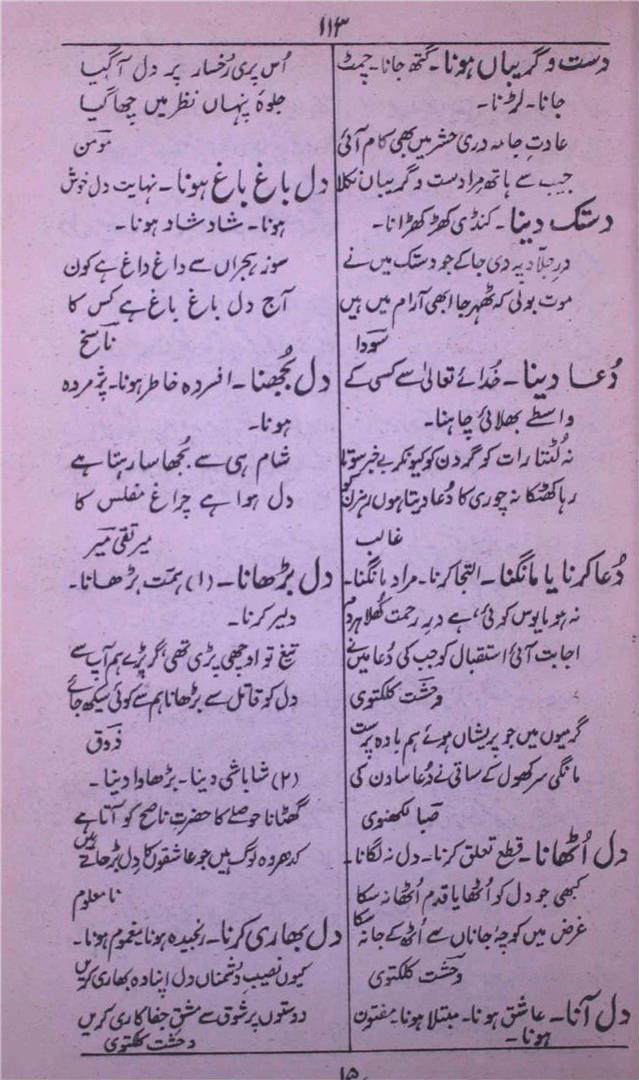 ۱۱۳
دست و گریباں ہونا۔ گتھ جانا۔ چمٹ
جانا۔ لڑنا۔
عادتِ جامہ دری حشر میں بھی کام آئی
جیب سے ہاتھ مرا دست و گریباں نکلا
دستک دینا۔ کنڈی کھڑکھڑانا۔
در پہ دی جا کے جو دستک میں نے
موت بولی کہ ٹھہر جا ابھی آرام میں ہیں
سودا
دُعا دینا۔ خدائے تعالیٰ سے کسی کے
واسطے بھلائی چاہنا۔
نہ لُٹتا رات کو گر دن کو کیونکر بے خبر سوتا
رہا کھٹکا نہ چوری کا دُعا دیتا ہوں رہزن کو
غالب
دُعا کرنا یا مانگنا۔ التجا کرنا۔ مراد مانگنا۔
نہ ہو مایوس کوئی، ہے درِ رحمت کُھلا ہر دم
اجابت آئی استقبال کو جب کی دُعا میں نے
وحشت کلکتوی
گرمیوں میں جو پریشاں ہوئے ہم بادہ پرست
مانگی سر کھول کے ساقی نے دُعا ساون کی
صبا لکھنوی
دل اُٹھانا۔ قطع تعلق کرنا۔ دل نہ لگانا۔
کبھی جو دل کو اُٹھایا قدم اُٹھا نہ سکا
غرض میں کوچۂ جاناں سے اُٹھ کے جا نہ سکا
وحشت کلکتوی
دل آنا۔ عاشق ہونا۔ مبتلا ہونا۔ مفتون
ہونا۔
اُس پری رُخسار پر دل آگیا
جلوۂ پنہاں نظر میں چھا گیا
مومن
دل باغ باغ ہونا۔ نہایت دل خوش
ہونا۔ شاد شاد ہونا۔
سوزِ ہجراں سے داغ داغ ہے کون
آج دل باغ باغ ہے کس کا
ناسخ
دل بُجھنا۔ افسردہ خاطر ہونا۔ پژمردہ
ہونا۔
شام ہی سے بُجھا سا رہتا ہے
دل ہوا ہے چراغ مفلس کا
میر تقی میر
دل بڑھانا۔ (۱) ہمت بڑھانا۔
دلیر کرنا۔
تیغ تو اوچھی پڑی تھی گر پڑے ہم آپ سے
دل کو قاتل سے بڑھانا ہم سے کوئی سیکھ جائے
ذوق
(۲) شاباشی دینا۔ بڑھاوا دینا۔
گھٹانا حوصلے کا حضرتِ ناصح کو آتا ہے
کدھر وہ لوگ ہیں جو عاشقوں کا دل بڑھاتے ہیں
نامعلوم
دل بھاری کرنا۔ رنجیدہ ہونا۔ مغموم ہونا۔
کیوں نصیب دشمناں دل اپنا وہ بھاری کریں
دوستوں پر شوق سے مشقِ جفا کاری کریں
وحشت کلکتوی
۱۵